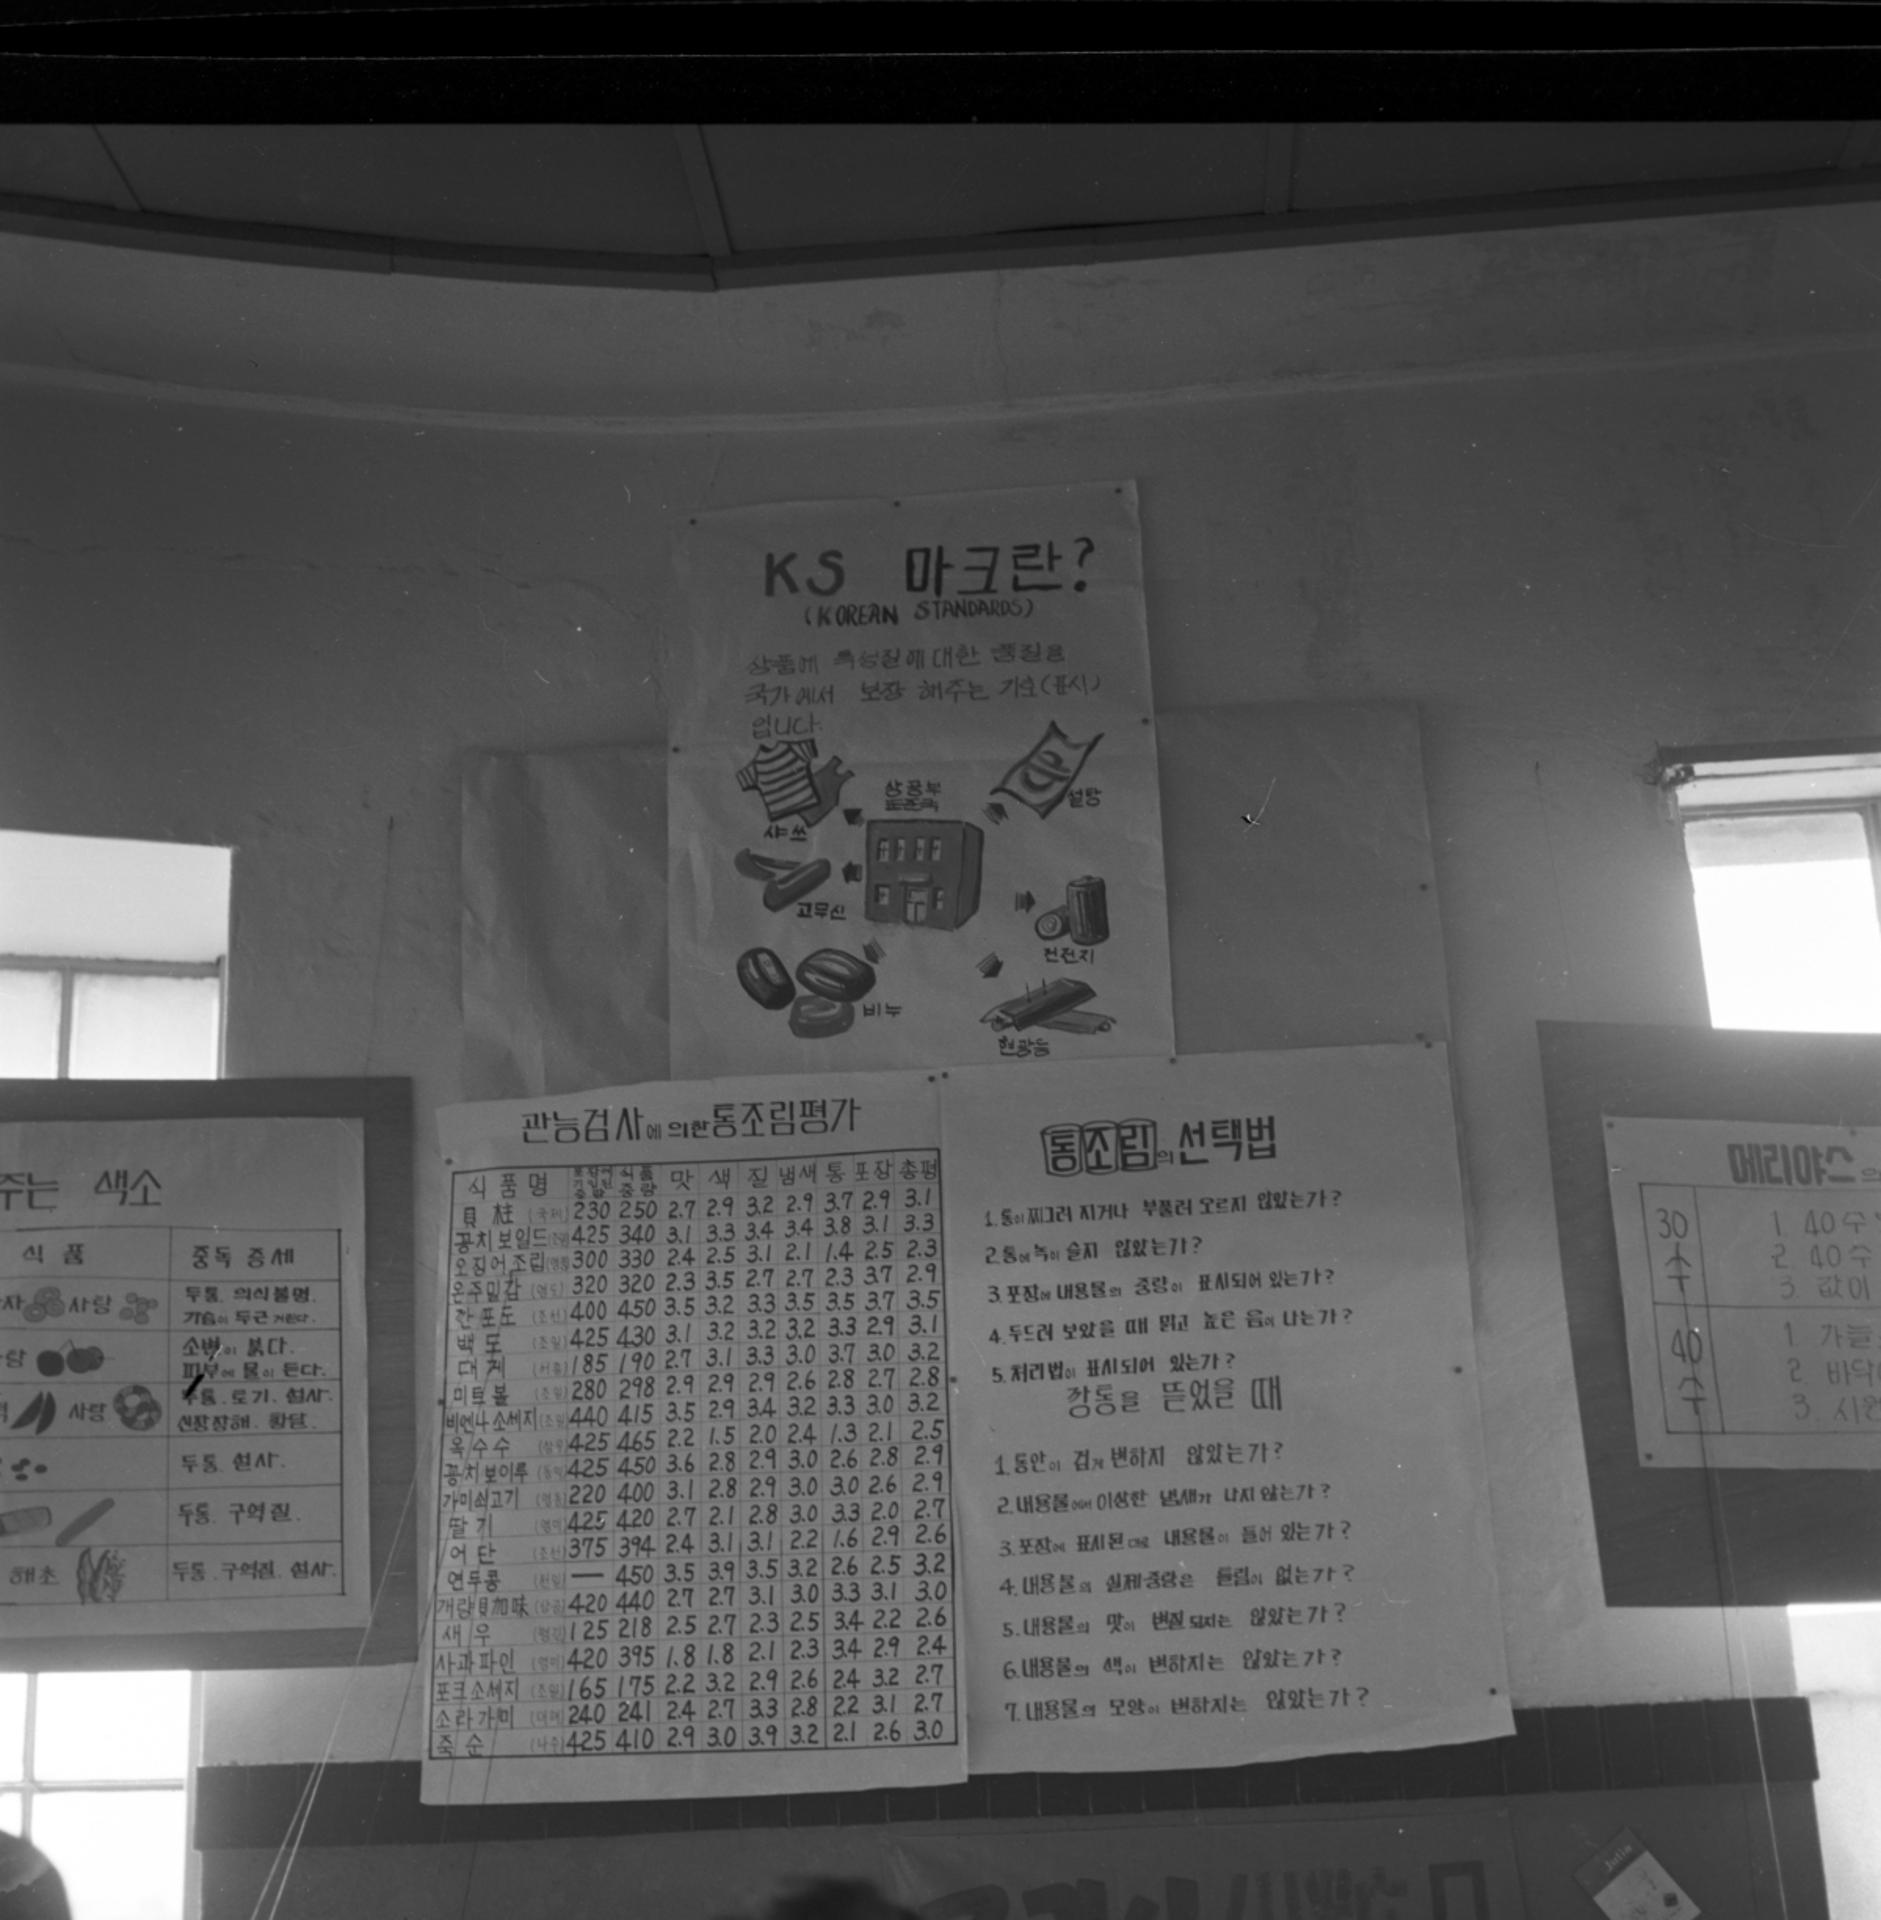 KS 마크란?
(KOREAN STANDARDS)
상품에 특성질에 대한 품질을
국가에서 보장 해주는 기호(표시)
입니다.
상공부
표준국
샤쓰
설탕
고무신
건전지
비누
형광등
주는 색소
식품 중독 증세
사탕 두통. 의식불명.
가슴이 두근 거린다.
소변이 붉다.
피부에 물이 든다.
사탕 두통. 토기. 설사.
신장장해. 황달.
두통. 설사.
두통. 구역질.
해초 두통. 구역질. 설사.
관능검사에 의한 통조림평가
식품명 식품중량 맛 색 질 냄새 통 포장 총평
貝柱 (국제) 230 250 2.7 2.9 3.2 2.9 3.7 2.9 3.1
꽁치보일드 425 340 3.1 3.3 3.4 3.4 3.8 3.1 3.3
오징어조림 300 330 2.4 2.5 3.1 2.1 1.4 2.5 2.3
온주밀감 320 320 2.3 3.5 2.7 2.7 2.3 3.7 2.9
깐포도 (조선) 400 450 3.5 3.2 3.3 3.5 3.5 3.7 3.5
백도 (조일) 425 430 3.1 3.2 3.2 3.2 3.3 2.9 3.1
대게 185 190 2.7 3.1 3.3 3.0 3.7 3.0 3.2
미트볼 (조일) 280 298 2.9 2.9 2.9 2.6 2.8 2.7 2.8
비엔나소세지 (조일) 440 415 3.5 2.9 3.4 3.2 3.3 3.0 3.2
옥수수 425 465 2.2 1.5 2.0 2.4 1.3 2.1 2.5
꽁치보이루 425 450 3.6 2.8 2.9 3.0 2.6 2.8 2.9
가미쇠고기 220 400 3.1 2.8 2.9 3.0 3.0 2.6 2.9
딸기 425 420 2.7 2.1 2.8 3.0 3.3 2.0 2.7
어단 (조선) 375 394 2.4 3.1 3.1 2.2 1.6 2.9 2.6
연두콩 — 450 3.5 3.9 3.5 3.2 2.6 2.5 3.2
개량貝加味 420 440 2.7 2.7 3.1 3.0 3.3 3.1 3.0
새우 125 218 2.5 2.7 2.3 2.5 3.4 2.2 2.6
사과파인 420 395 1.8 1.8 2.1 2.3 3.4 2.9 2.4
포크소세지 (조일) 165 175 2.2 3.2 2.9 2.6 2.4 3.2 2.7
소라가미 240 241 2.4 2.7 3.3 2.8 2.2 3.1 2.7
죽순 (나주) 425 410 2.9 3.0 3.9 3.2 2.1 2.6 3.0
통조림의 선택법
1. 통이 찌그러 지거나 부풀러 오르지 않았는가?
2. 통에 녹이 슬지 않았는가?
3. 포장에 내용물의 중량이 표시되어 있는가?
4. 두드려 보았을 때 맑고 높은 음이 나는가?
5. 처리법이 표시되어 있는가?
깡통을 뜯었을 때
1. 통안이 검게 변하지 않았는가?
2. 내용물에서 이상한 냄새가 나지 않는가?
3. 포장에 표시된 대로 내용물이 들어 있는가?
4. 내용물의 실제중량은 틀림이 없는가?
5. 내용물의 맛이 변질되지는 않았는가?
6. 내용물의 색이 변하지는 않았는가?
7. 내용물의 모양이 변하지는 않았는가?
메리야스의
30수 1. 40수
2. 40수
3. 값이
40수 1. 가늘
2. 바닥
3. 시원
Julia